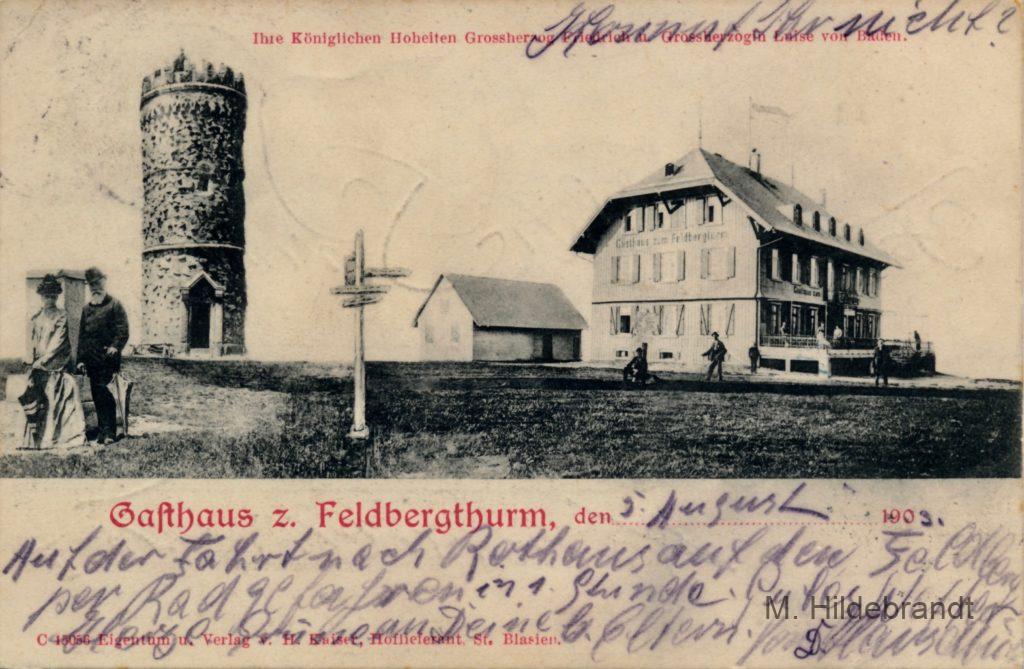 Kommt Ihr nicht?
Ihre Königlichen Hoheiten Grossherzog Friedrich u. Grossherzogin Luise von Baden.
Gasthaus zum Feldbergturm
Gasthaus z. Feldbergthurm, den 5. August 1903.
Auf der Fahrt nach Rothaus auf den Feldberg
per Rad gefahren in 1. Stunde.
M. Hildebrandt
Deine Eltern.
C 15056 Eigentum u. Verlag v. H. Kaiser, Hoflieferant, St. Blasien.